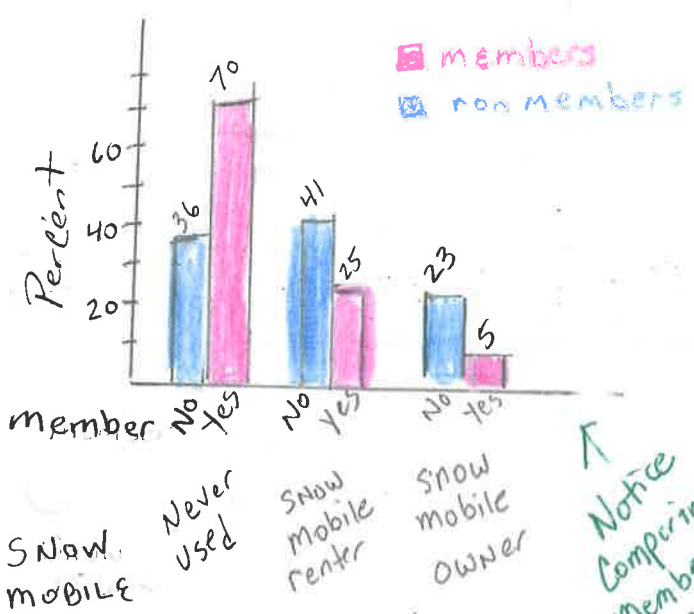 members
non members
Percent
60
40
20
36
70
41
25
23
5
member No Yes No Yes No Yes
SNOW MOBILE
Never used
SNOW mobile renter
SNOW mobile OWNER
Notice